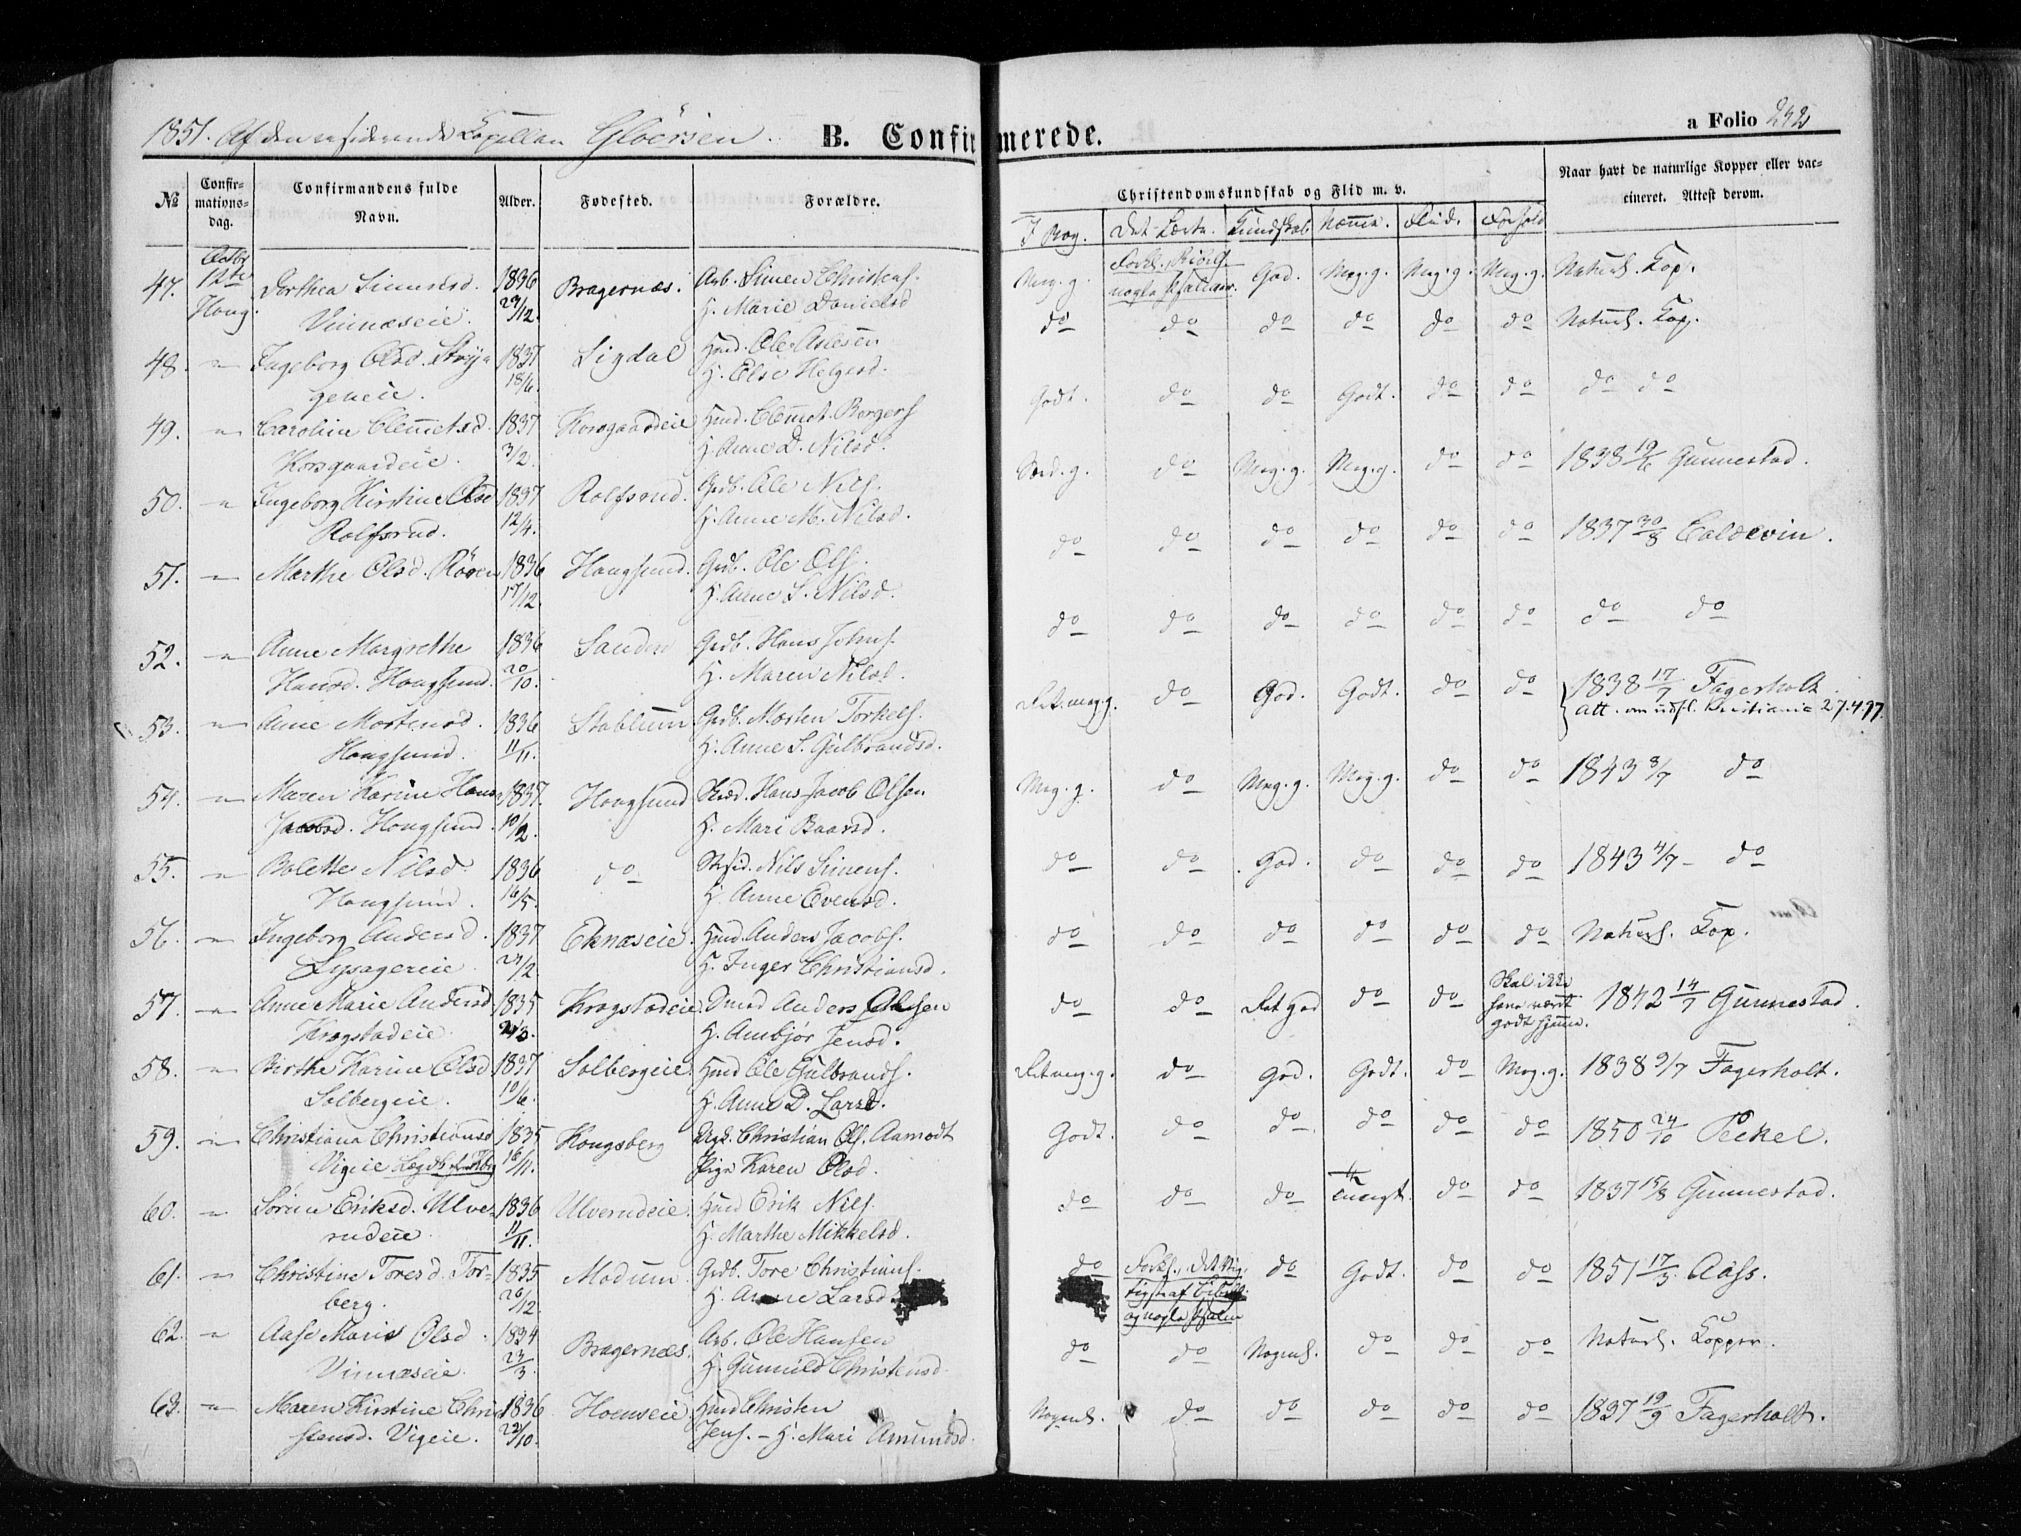 1851. Af den residerende Capellan Gloërsen. B. Confirmerede. a Folio 242
№ Confirmationsdag. Confirmandens fulde Navn. Alder. Fødested. Forældre. Christendomskundskab og Flid m. v. Naar havt de naturlige Kopper eller vaccineret. Attest derom.
I Bog. Det Lærte. Kundskab Nemme. Flid. Forhold
47. Octbr 12te Houg. Dorthea Simensd. 1836 Bragernæs. Arb. Simen Christens. Meg. g. nogle psalmer. God. Meg. g. Meg. g. Meg. g. Naturl. Kop.
Vinnæseie. 29/12. H. Marie Danielsd do do do do do do Naturl. Kop.
48. " Ingeborg Olsd. 1837 Sigdal Hmd. Ole Aslesen
geneie. 18/6. H. Else Helgesd. Godt. do do Godt. do do do do
49. " Caroline Clemetsd. 1837 Korsgaardeie Hmd. Clemet Borgers
Korsgaardeie. 3/2. H. Anne D. Nilsd. do Meg. g. Meg. g. do do 1838 19/6 Gunnestad.
50. " Ingeborg Kirstine Olsd 1837 Rolfsrud. Grdb. Ole Nils.
Rolfsrud. 12/4. H. Anne M. Nilsd. do do do do do do 1837 30/8 Coldevin.
51. " Marthe Olsd. Røren 1836 Hougsund. Grdb. Ole Ols.
17/12. H. Anne S. Nilsd. do do do do do do do do
52. " Anne Margrethe 1836 Sanden Grdb. Hans Johns.
Hansd. Hougsund. 20/10. H. Maren Nilsd. Ret meg. g. do God. Godt. do do 1838 17/7 Fagerholt
53. " Anne Mortensd. 1836 Stablum Grdb. Morten Torkels. att. om udfl. Kristiania 27.4.97.
Hougsund. 11/11. H. Anne S. Gulbrandsd.
54. " Maren Karine Hans 1837. Hougsund Hans Jacob Olsen Meg. g. do Meg. g. Meg. g. do do 1843 8/7 do
Jacobsd. Hougsund. 10/2. H. Mari Baarsd.
55. " Bolette Nilsd. 1836 do Nils Simens. do do God. do do do 1843 4/7 - do
Hougsund. 16/5. H. Anne Evensd.
56. " Ingeborg Andersd. 1837. Eknæseie. Hmd. Anders Jacobs. do do do do do do Naturl. Kop.
Lysagereie. 27/2. H. Inger Christiansd.
57. " Anne Marie Andersd 1835 Krogstadeie. Hmd Anders Olsen do do Ret God do do Skal ikke have været godt hjemme. 1842 14/7 Gunnestad.
Krogstadeie. H. Ambjør Jensd.
58. " Birthe Karine Olsd. 1837 Solbergeie. Hmd Ole Gulbrands. Ret meg. g. do God. Godt. do Meg. g. 1838 9/7 Fagerholt.
Solbergeie. 10/6. H. Anne D. Larsd.
59. " Christiana Christiansd 1835 Kongsberg Christian Ols. Aamodt Godt. do do do do do 1850 24/10 Peckel.
Vigeie 16/11. Pige Karen Olsd.
60. " Sørine Eriksd. Ulve- 1836 Ulverudeie. Hmd Erik Nils. do do do do do 1837 15/8 Gunnestad.
rudeie. 11/11. H. Marthe Mikkelsd.
61. " Christine Toresd. Tor- 1835 Modum Grdb. Tore Christians. do do Godt. do do 1851 17/3. Aass.
berg. 20/12. H. Anne Larsd. og nogle psalm
62. " Aase Marie Olsd. 1834 Bragernæs. Arb. Ole Hansen do do Nogenl. do do do Naturl. Kopper.
Vinnæseie. 23/3. H. Gunnild Christensd.
63. " Maren Kirstine Chri- 1836 Hoenseie Hmd Christen Nogenl. do do do do do 1837 19/9 Fagerholt.
stensd. Vigeie. 22/10. Jens. - H. Mari Amundsd.